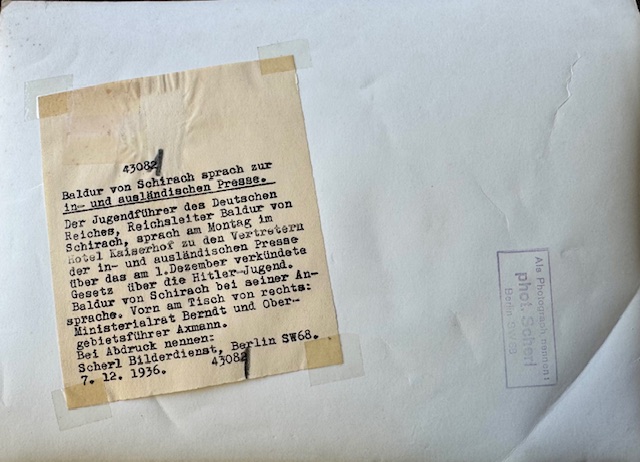 43082
Baldur von Schirach sprach zur
in- und ausländischen Presse.
Der Jugendführer des Deutschen
Reiches, Reichsleiter Baldur von
Schirach, sprach am Montag im
Hotel Kaiserhof zu den Vertretern
der in- und ausländischen Presse
über das am 1.Dezember verkündete
Gesetz über die Hitler-Jugend.
Baldur von Schirach bei seiner An-
sprache. Vorn am Tisch von rechts:
Ministerialrat Berndt und Ober-
gebietsführer Axmann.
Bei Abdruck nennen:
Scherl Bilderdienst, Berlin SW68.
7. 12. 1936. 43082
Als Photograph nennen:
phot. Scherl
Berlin